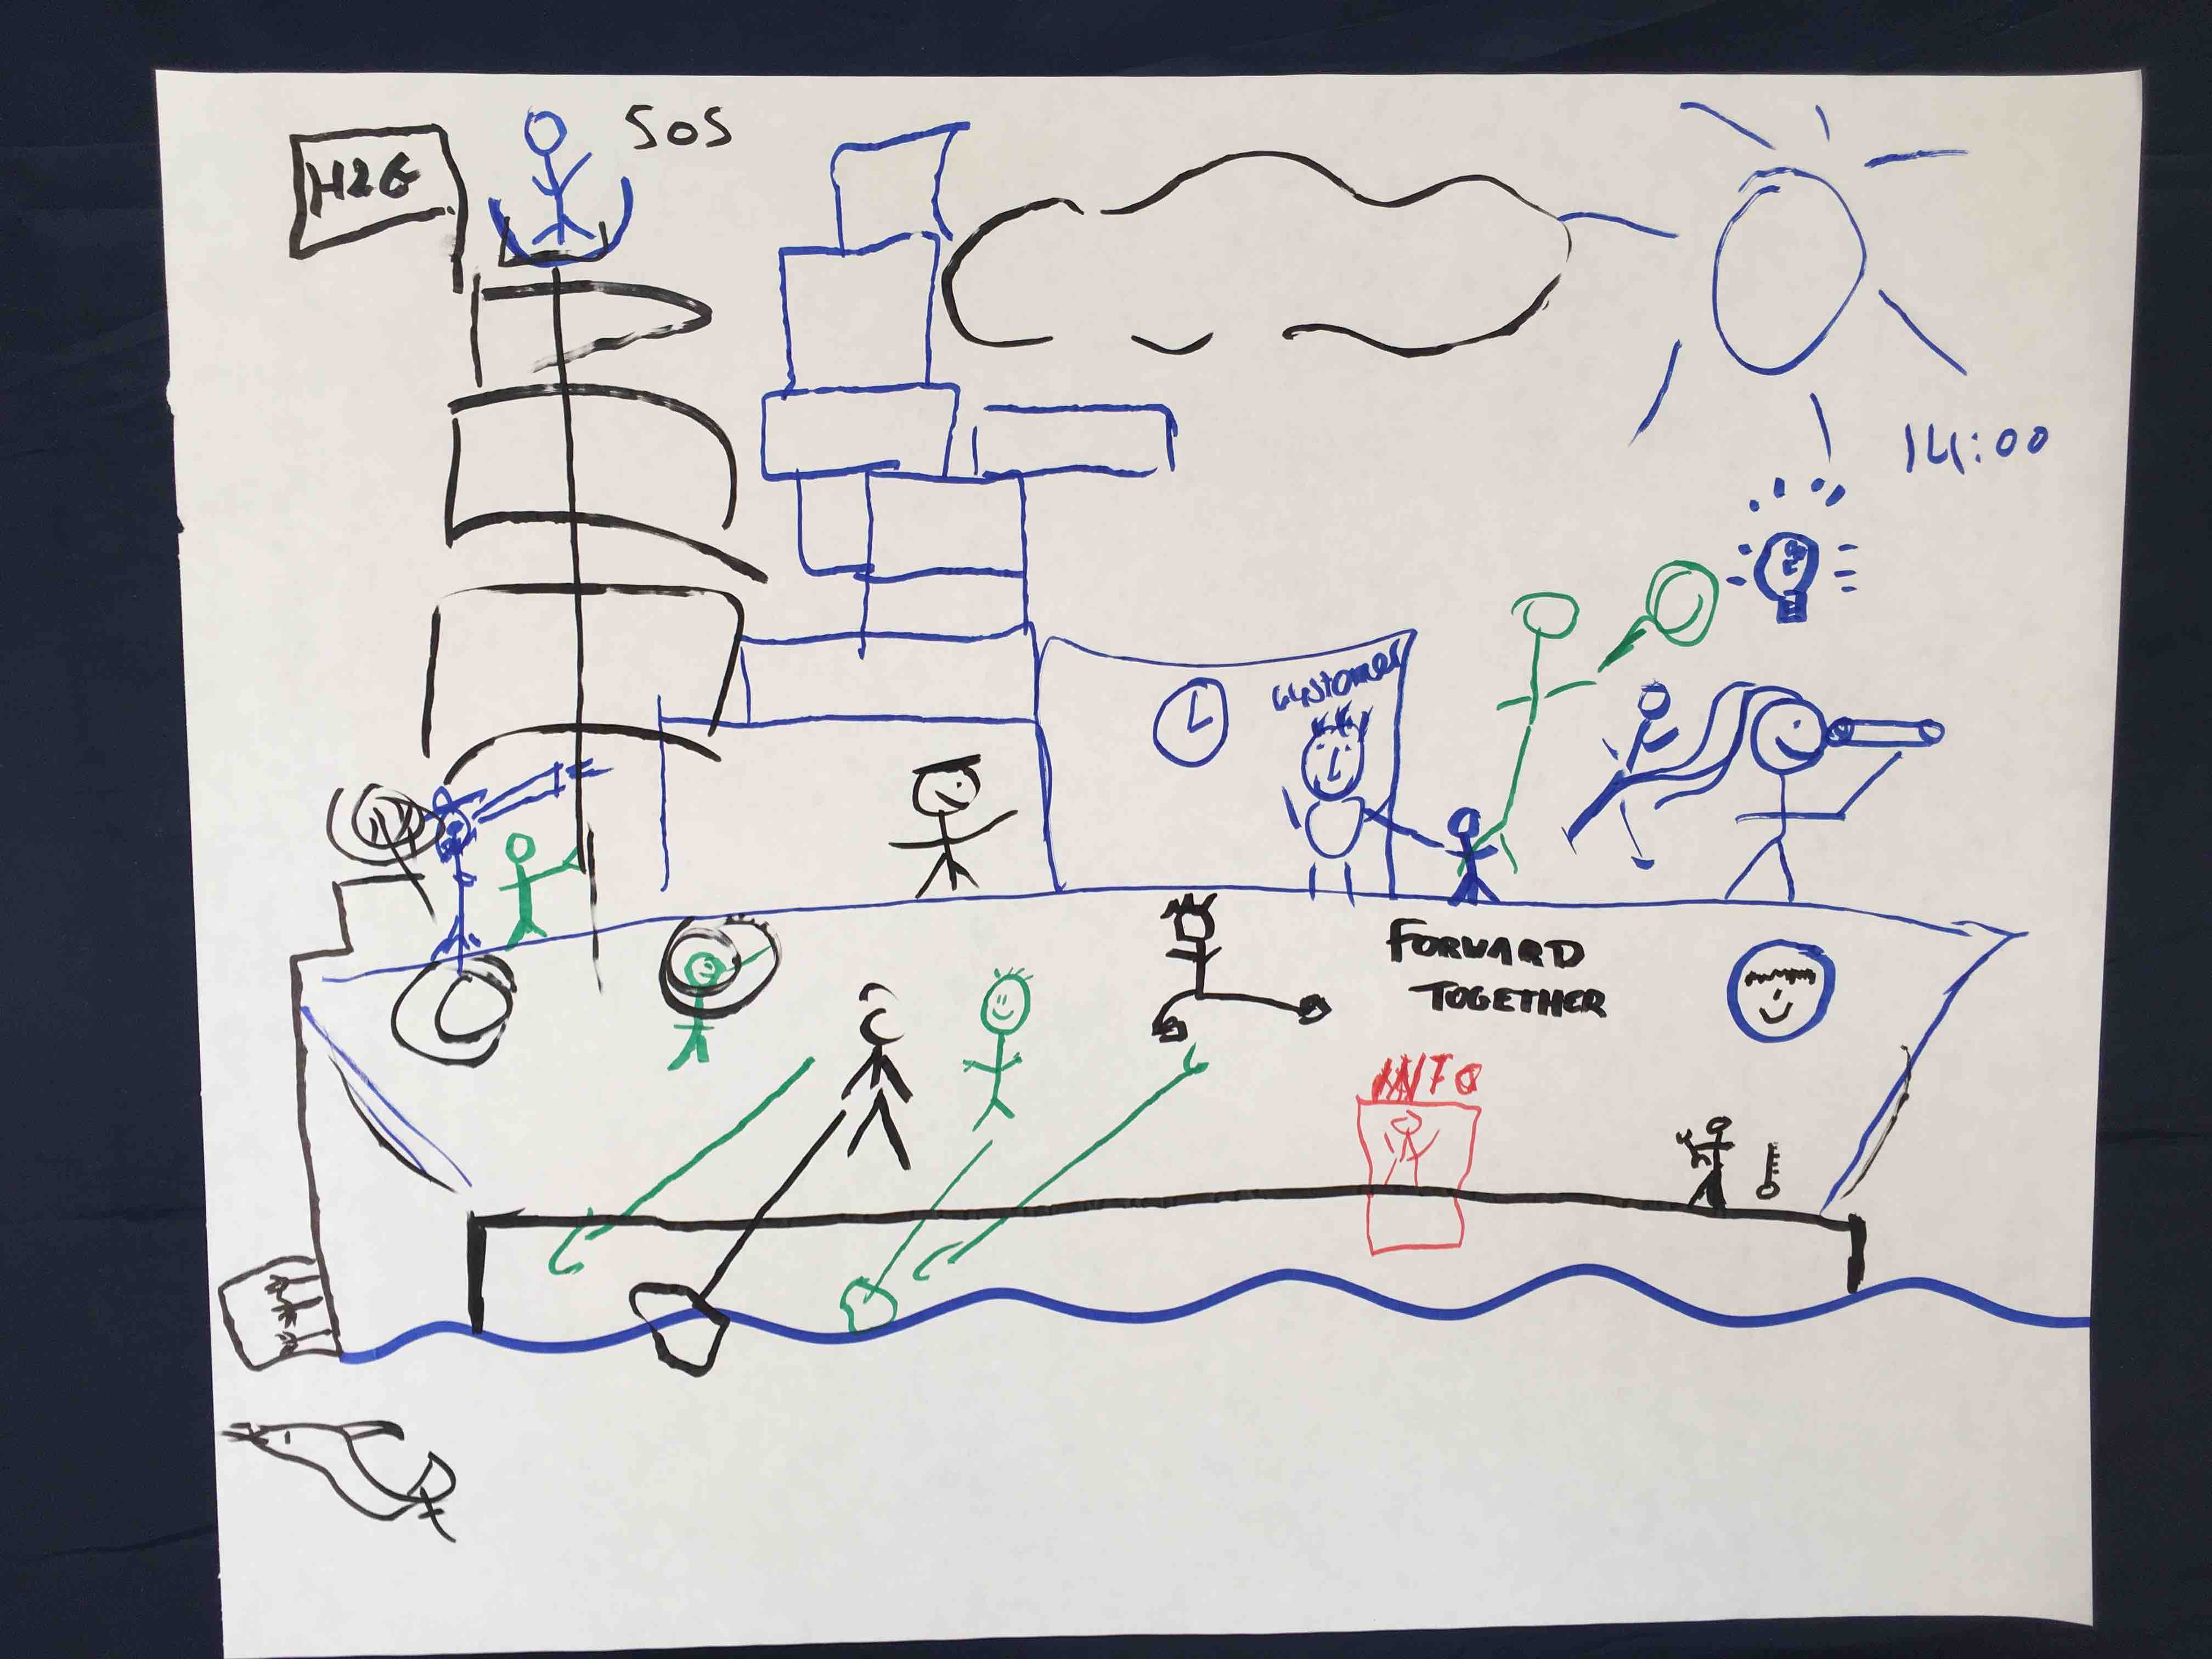 SOS
H2G
14:00
Customer
FORWARD
TOGETHER
INFO